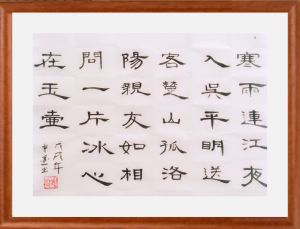 寒雨連江夜
入吳平明送
客楚山孤洛
陽親友如相
問一片冰心
在玉壺
戊戌年